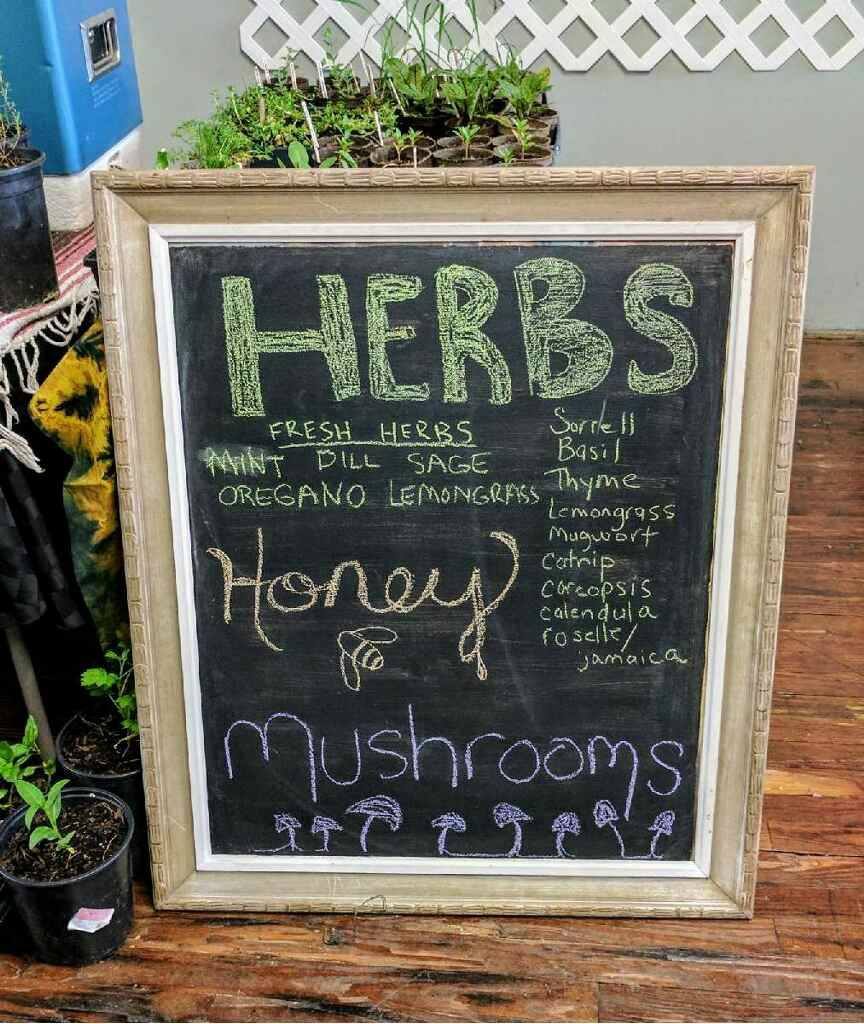 HERBS
FRESH HERBS
MINT DILL SAGE
OREGANO LEMONGRASS
Sorrell
Basil
Thyme
Lemongrass
Mugwort
Catnip
Coreopsis
calendula
roselle/
jamaica
Honey
Mushrooms